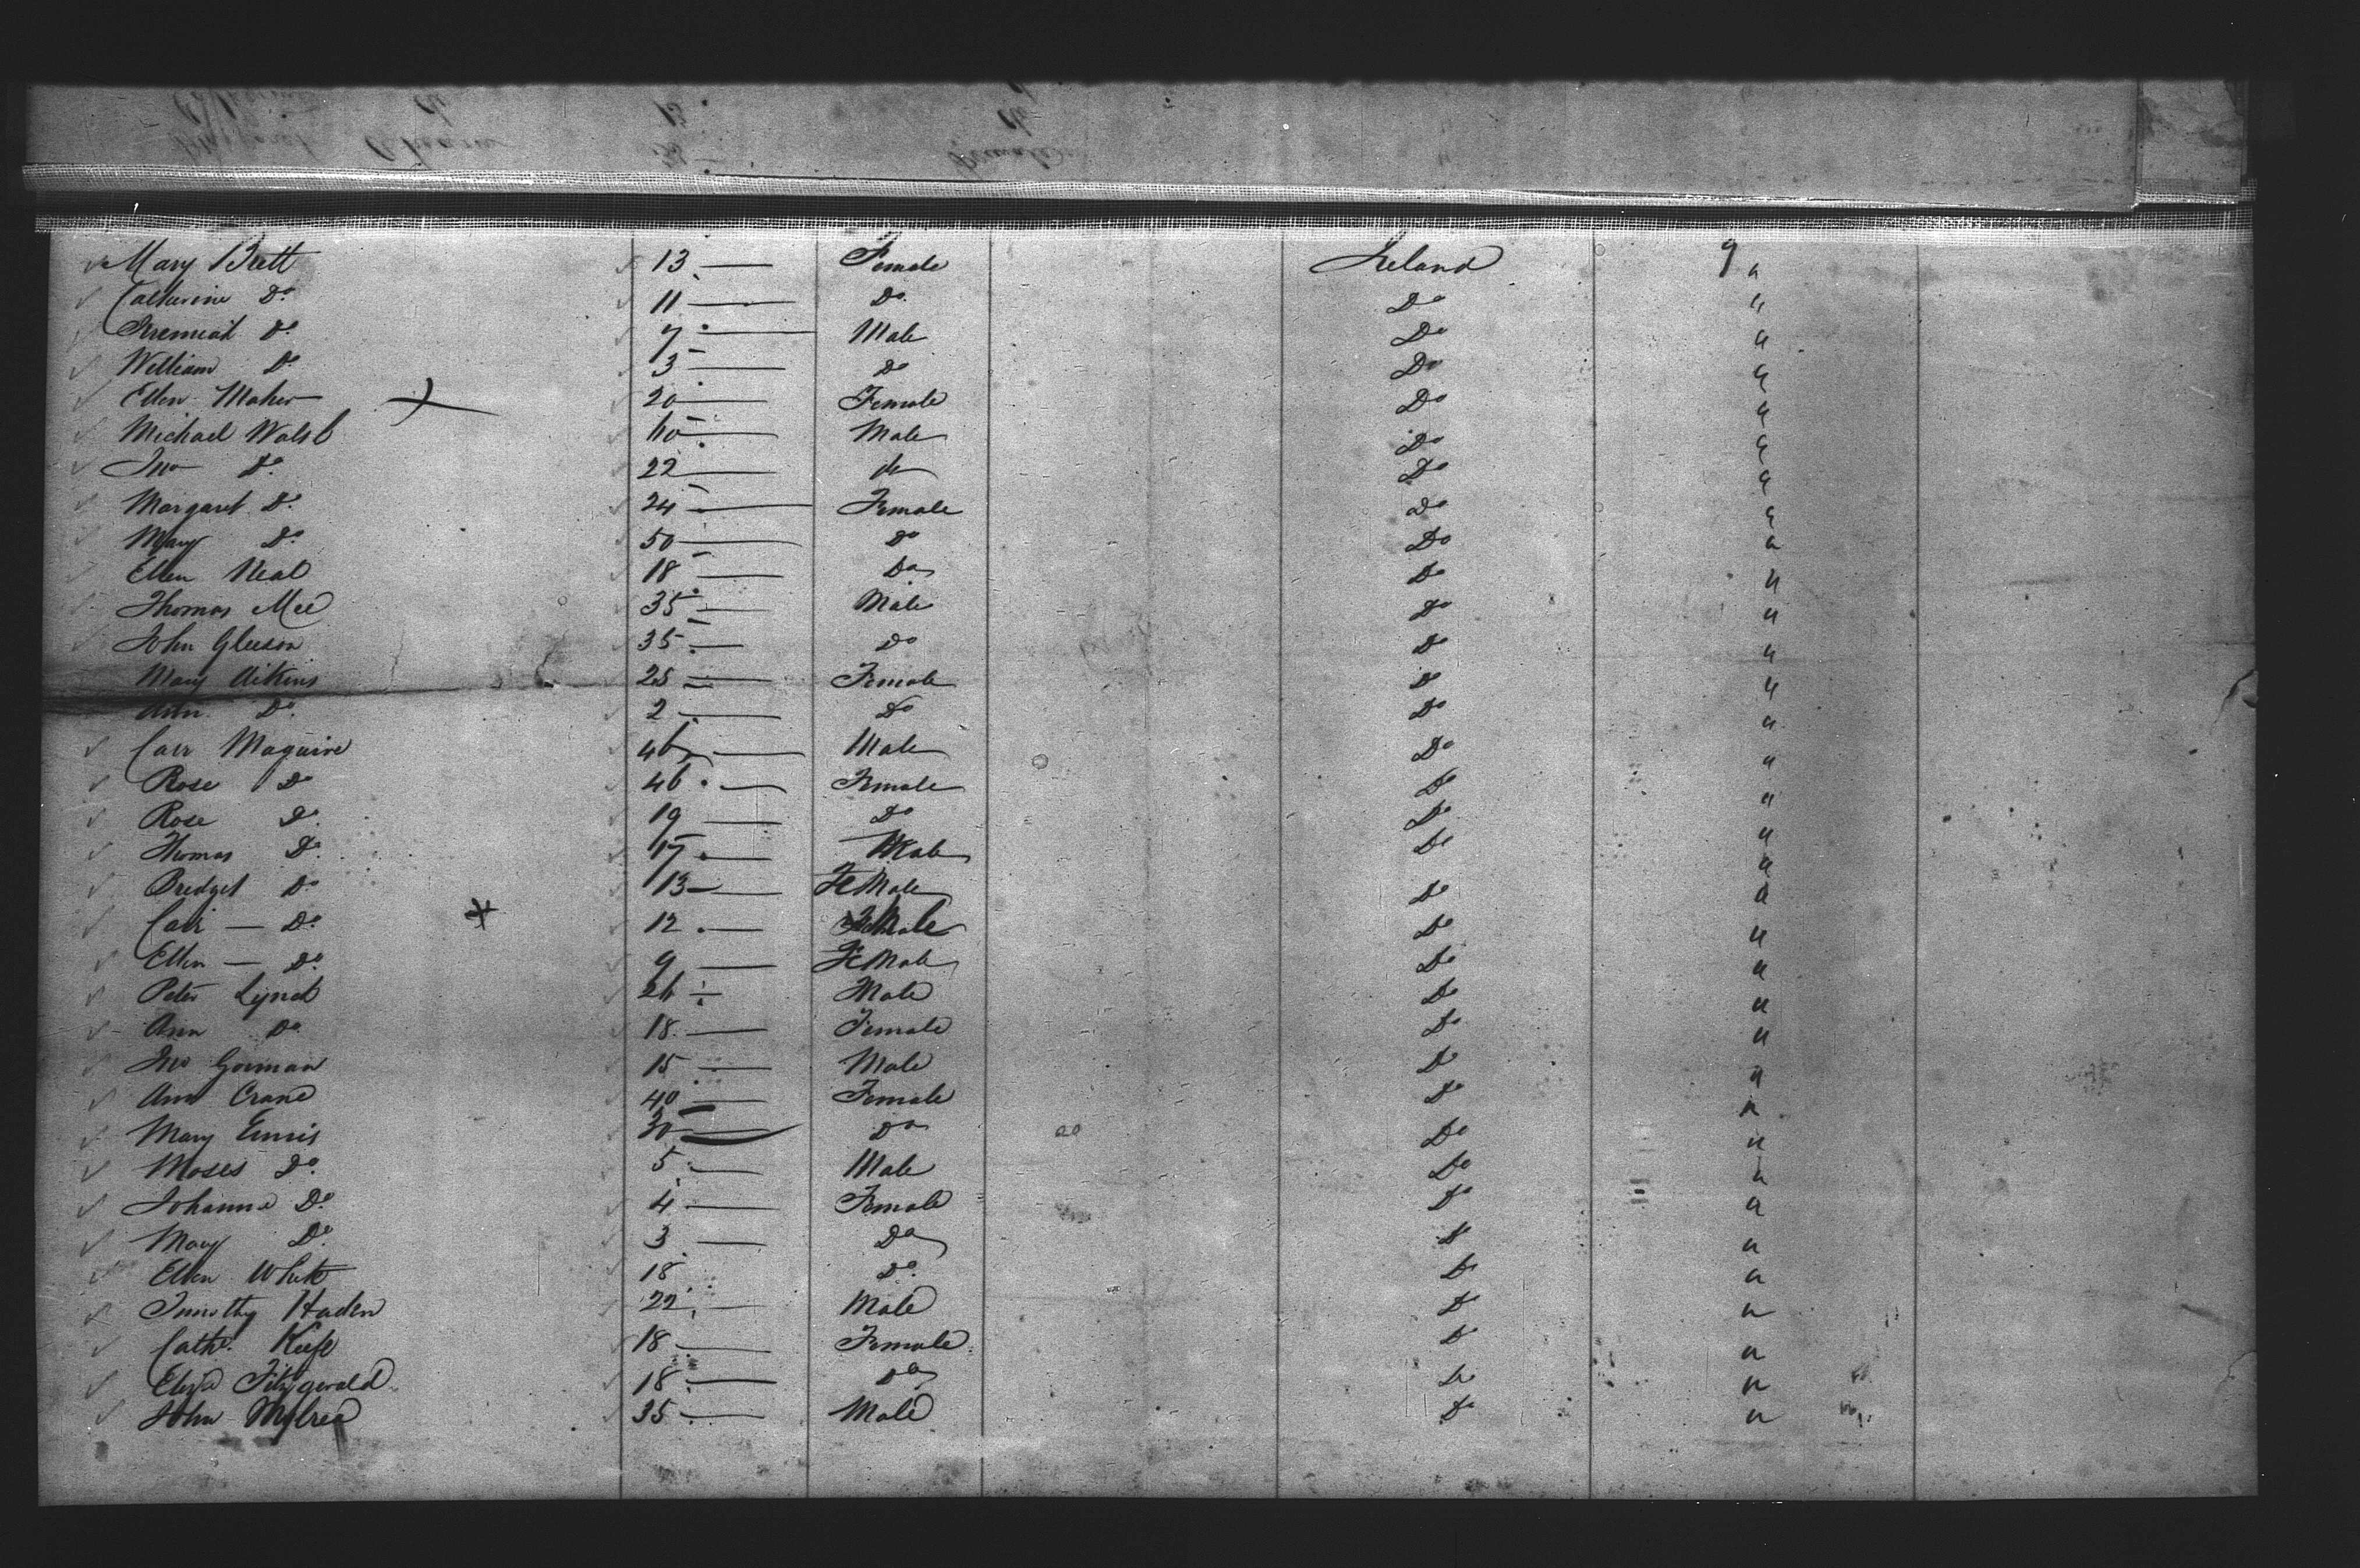 Mary Brett 13 — Female Ireland 9 "
Catherine Do. 11 — Do. Do "
Jeremiah Do. 7 — Male Do "
William Do. 3 — Do Do "
Ellen Maher 20 — Female Do "
Michael Walsh 60 — Male Do "
Jno Do. 22 — do Do "
Margaret Do. 24 — Female Do "
Mary Do. 50 — Do Do "
Ellen Neal 18 — Do Do "
Thomas Mee 35 — Male Do "
John Gleeson 35 — Do Do "
Mary Aitkins 25 — Female Do "
Ann Do. 2 — Do Do "
Maguire 46 — Male Do "
Rose Do 46 — Female Do "
Rose Do. 19 — Do Do "
Thomas Do. 17 — Male Do "
Bridget Do 13 — FeMale Do "
— Do. 12 — Do "
Ellen — Do. 9 — FeMale Do "
Peter Lynch 26 — Male Do "
Ann Do 18 — Female Do "
Jno Gorman 15 — Male Do "
Ann Crane 40 — Female Do "
Mary Ennis 30 — Do Do "
Moses Do. 5 — Male Do "
Johanna Do. 4 — Female Do "
Mary Do. 3 — Do Do "
Ellen White 18 Do. Do "
Timothy Haden 22 — Male Do "
Cathe. Keefe 18 — Female Do "
Eliza Fitzgerald 18 — Do Do "
John 35 — Male Do "